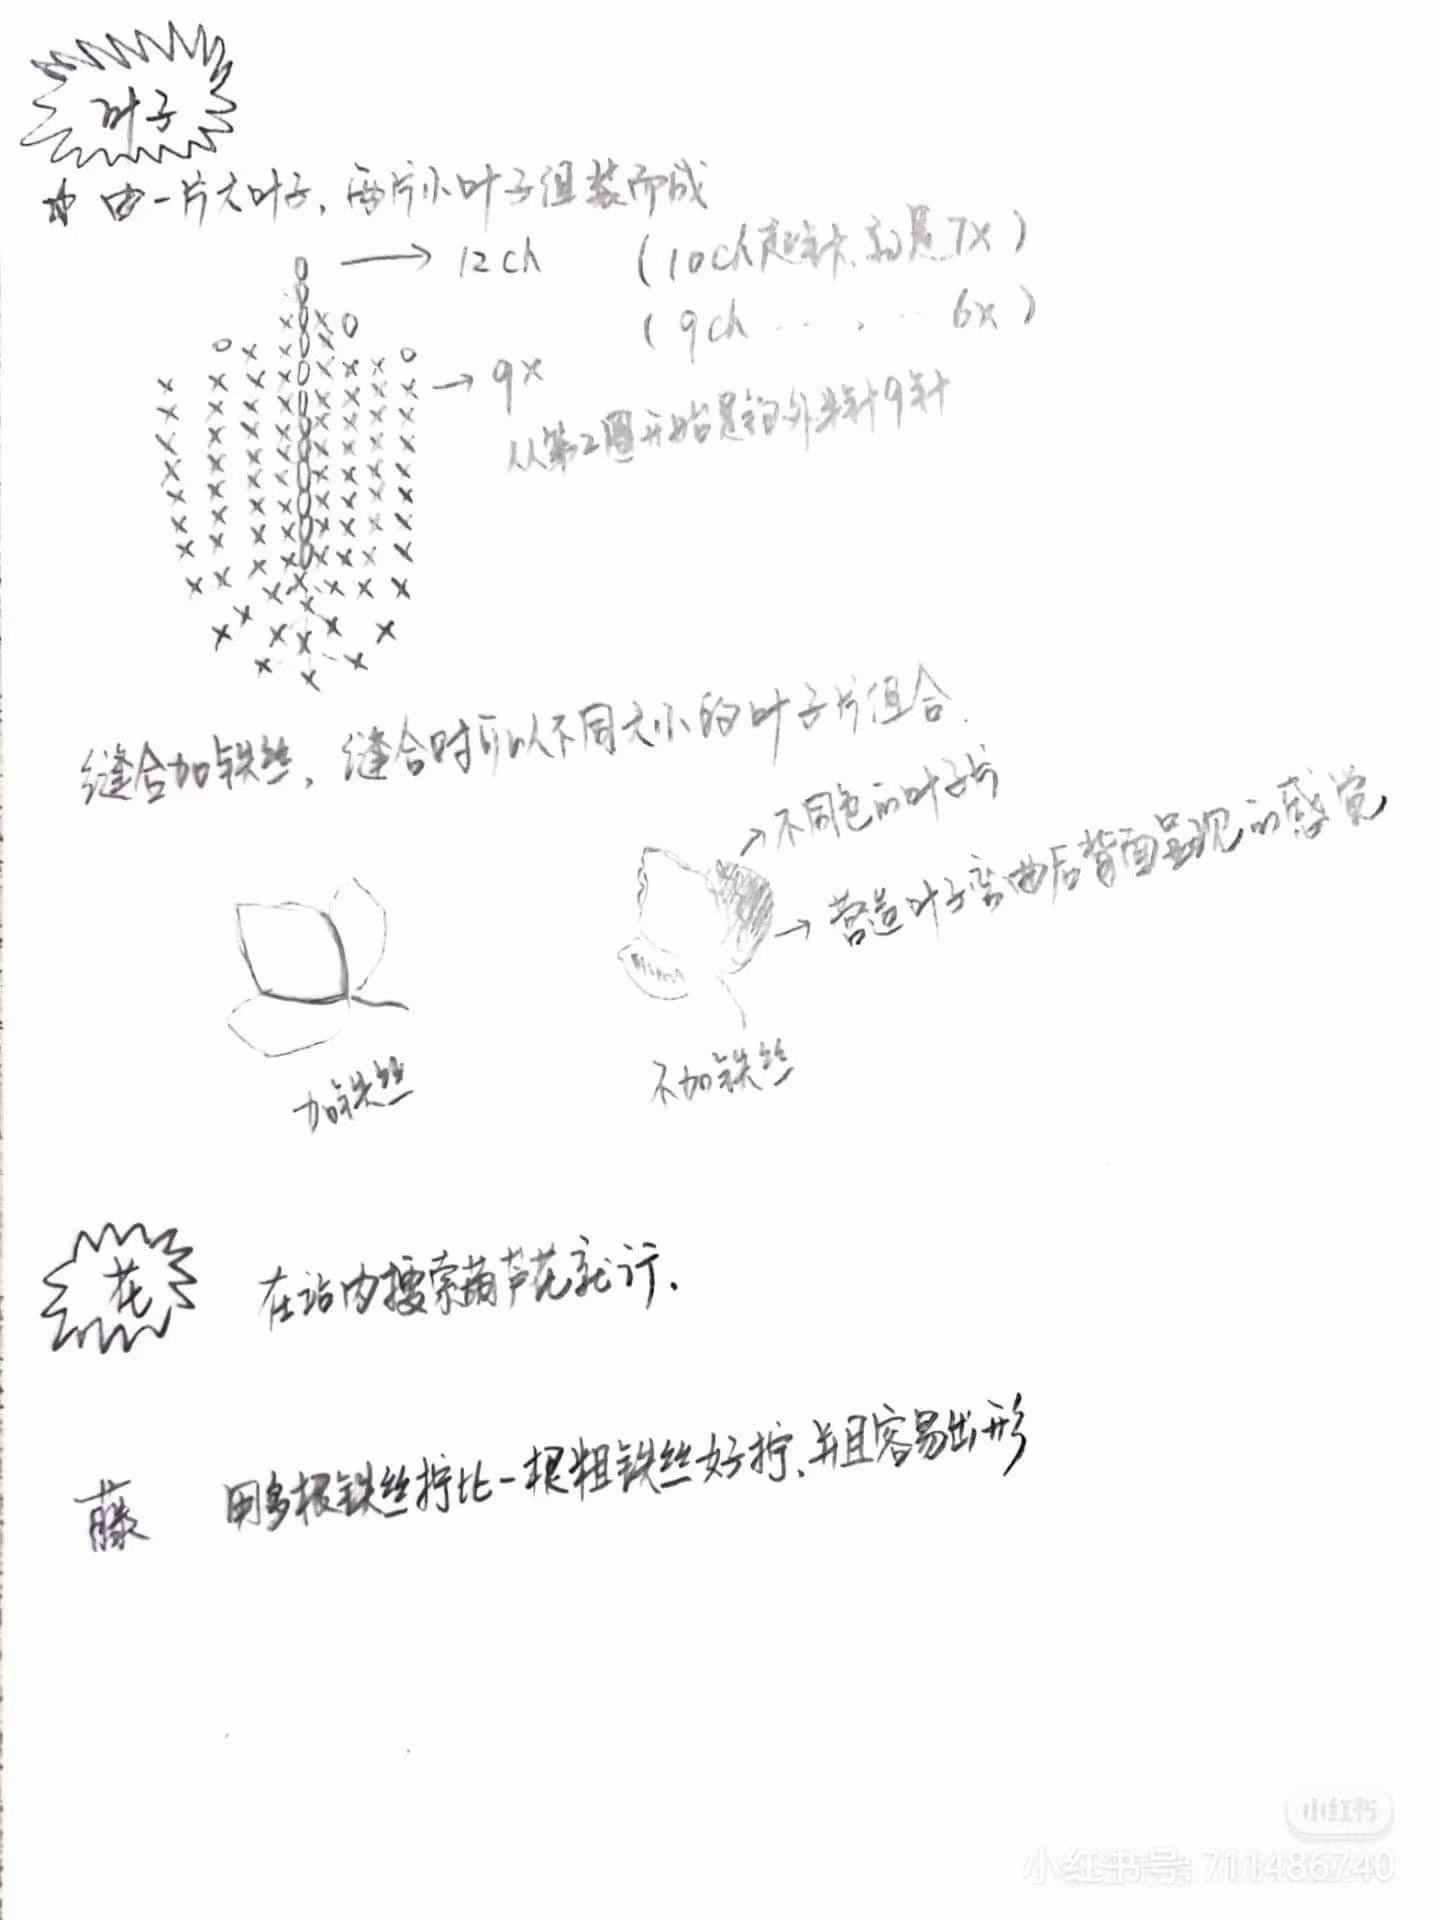 叶子
☆ 由一片大叶子,两片小叶子组装而成
→ 12ch (10ch起针,就是7x)
(9ch ...,.. 6x)
→ 9x
从第2圈开始是钩外半针9针
缝合加铁丝,缝合时可以不同大小的叶子片组合.
→不同色的叶子片
→ 营造叶子弯曲后背面呈现的感觉
加铁丝
不加铁丝
花 在站内搜索葫芦花就行.
藤 用多根铁丝拧比一根粗铁丝好拧,并且容易出形
小红书
小红书号: 711486740